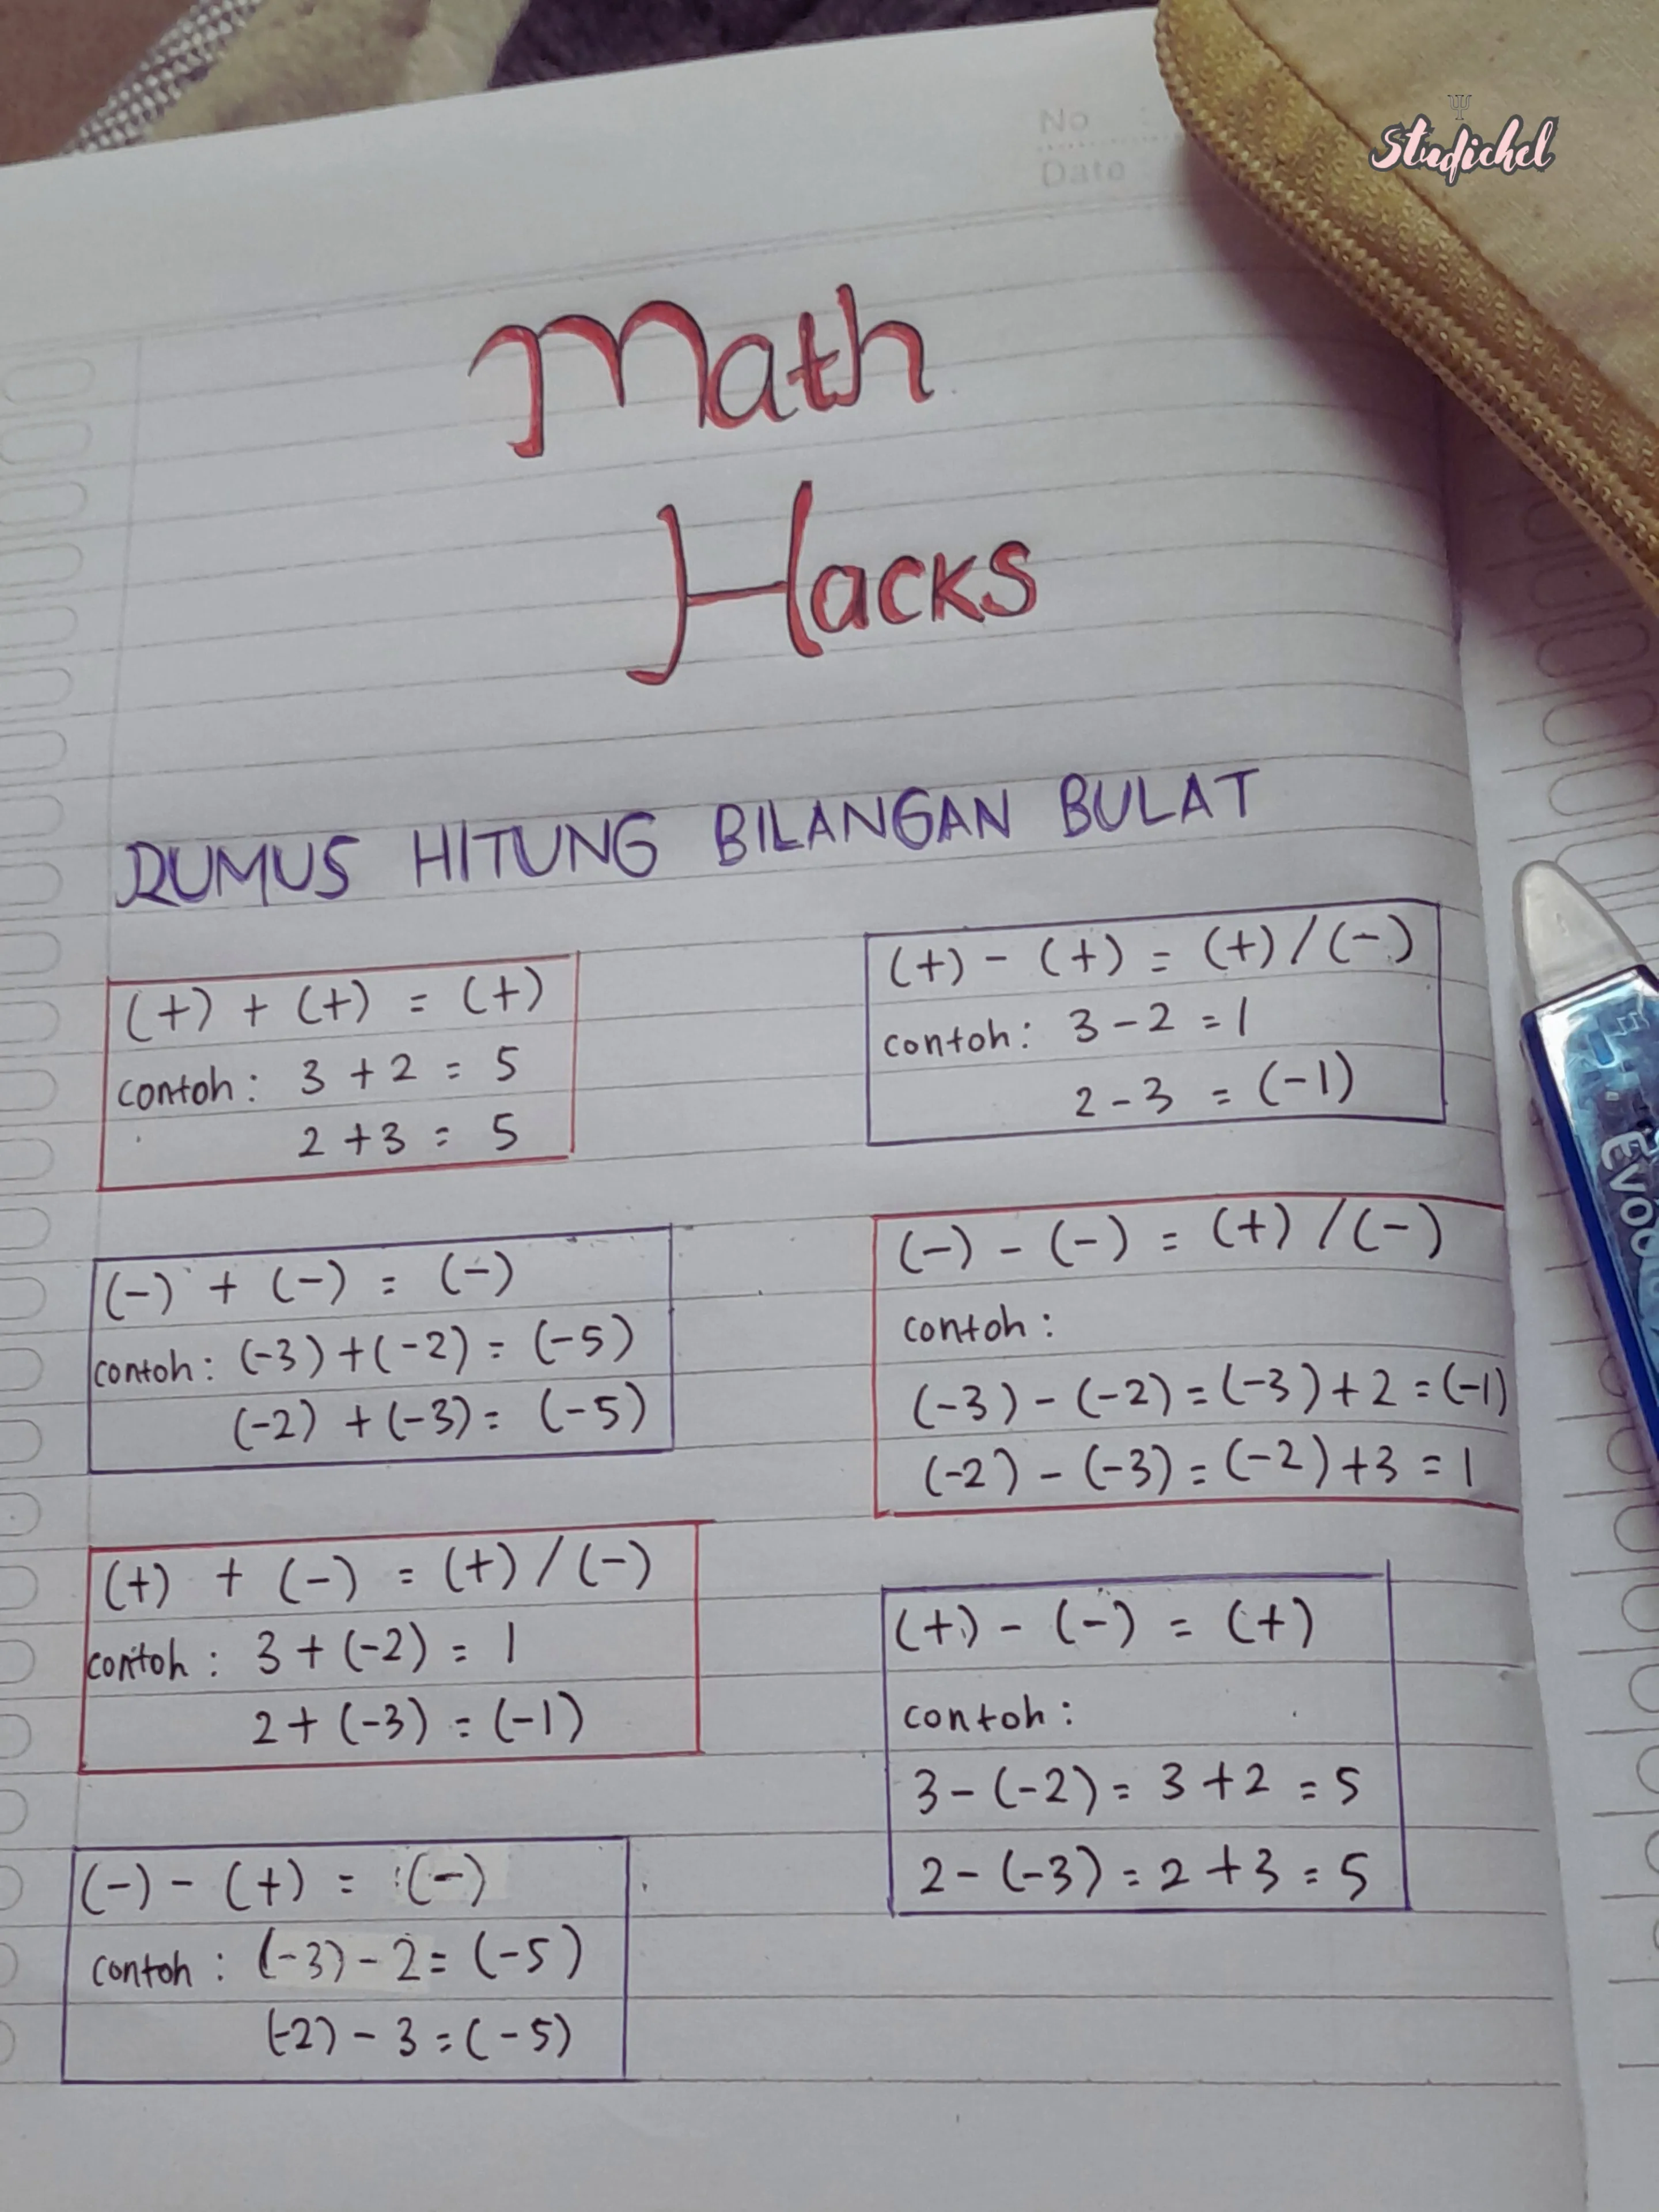 No :
Date
Studichel
Math
Hacks
RUMUS HITUNG BILANGAN BULAT
(+) + (+) = (+)
contoh: 3 + 2 = 5
2 + 3 = 5
(-) + (-) = (-)
contoh: (-3) + (-2) = (-5)
(-2) + (-3) = (-5)
(+) + (-) = (+) / (-)
contoh: 3 + (-2) = 1
2 + (-3) = (-1)
(-) - (+) = (-)
contoh: (-3) - 2 = (-5)
(-2) - 3 = (-5)
(+) - (+) = (+) / (-)
contoh: 3 - 2 = 1
2 - 3 = (-1)
(-) - (-) = (+) / (-)
contoh:
(-3) - (-2) = (-3) + 2 = (-1)
(-2) - (-3) = (-2) + 3 = 1
(+) - (-) = (+)
contoh:
3 - (-2) = 3 + 2 = 5
2 - (-3) = 2 + 3 = 5